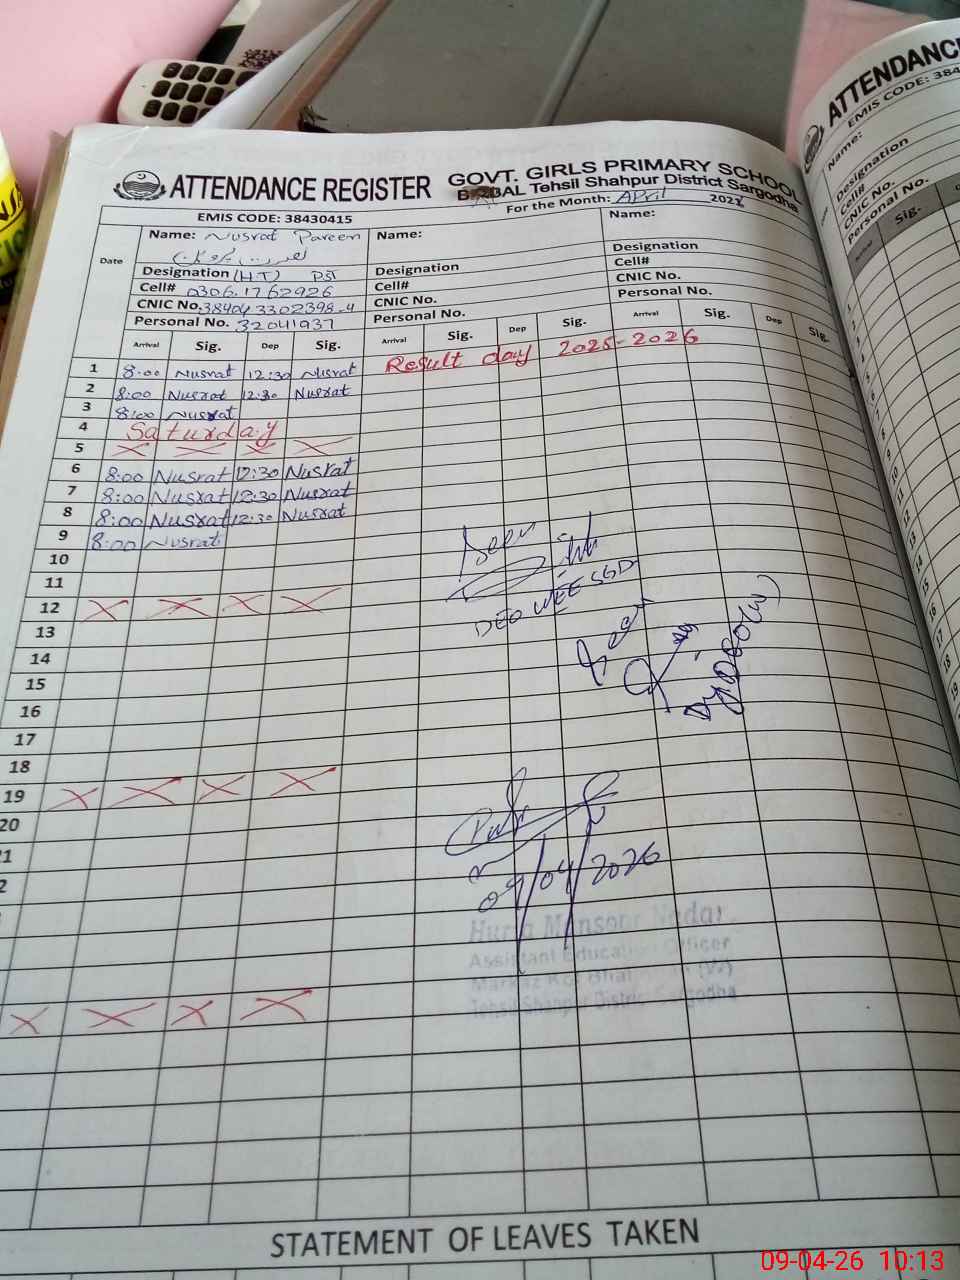 ATTENDANCE REGISTER
GOVT. GIRLS PRIMARY SCHOOL
Tehsil Shahpur District Sargodha
EMIS CODE: 38430415
For the Month: April 202
Date
Name: Nusrat Pareen
Name:
Name:
Designation (H.T) PST
Designation
Designation
Cell# 0306.1762926
Cell#
Cell#
CNIC No. 38404 3302398-4
CNIC No.
CNIC No.
Personal No. 32041937
Personal No.
Personal No.
Arrival Sig. Dep Sig. Arrival Sig. Dep Sig. Arrival Sig. Dep Sig.
1 8:00 Nusrat 12:30 Nusrat Result day 2025-2026
2 8:00 Nusrat 12:30 Nusrat
3 8:00 Nusrat
4 Saturday
5
6 8:00 Nusrat 12:30 Nusrat
7 8:00 Nusrat 12:30 Nusrat
8 8:00 Nusrat 12:30 Nusrat
9 8:00 Nusrat
10
11
12
13
14
15
16
17
18
19
20
DEO WEE SGD
09/04/2026
Assistant Education Officer
Tehsil Shahpur District Sargodha
STATEMENT OF LEAVES TAKEN
ATTENDANCE
EMIS CODE: 384
Name:
Designation
Cell#
CNIC No.
Personal No.
Arrival Sig.
09-04-26 10:13